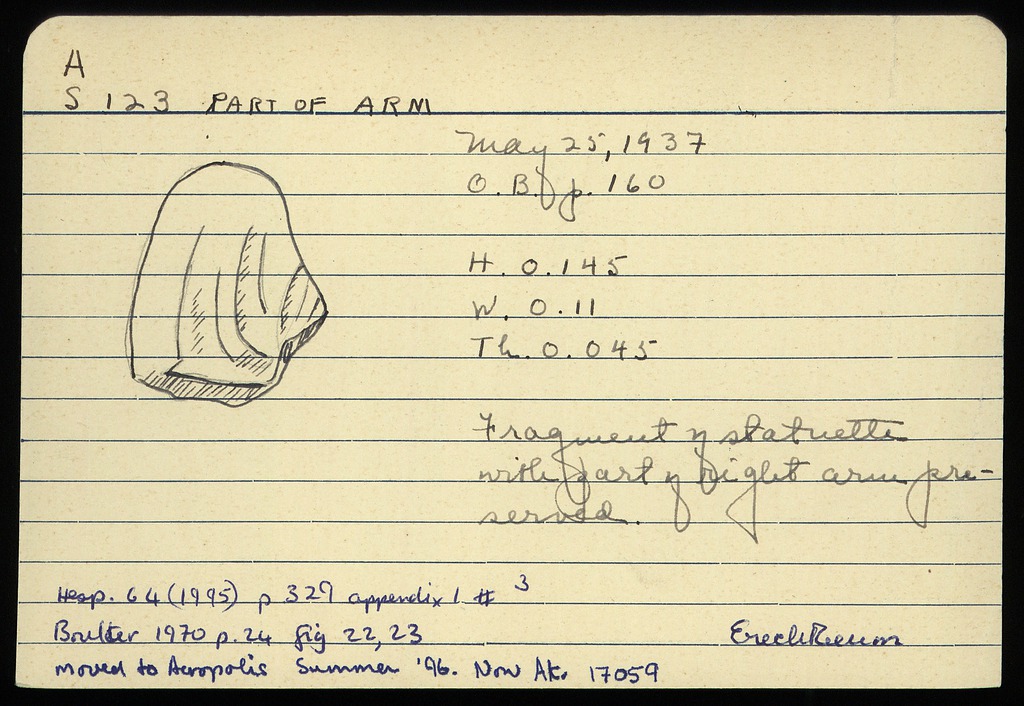 A
S 123 PART OF ARM
May 25, 1937
O.B. p. 160
H. 0.145
W. 0.11
Th. 0.045
Fragment of statuette
with part of right arm pre-
served.
Hesp. 64 (1995) p 329 appendix 1 # 3
Boulter 1970 p. 24 fig 22, 23
Erechtheum
moved to Acropolis Summer '96. Now Ak. 17059